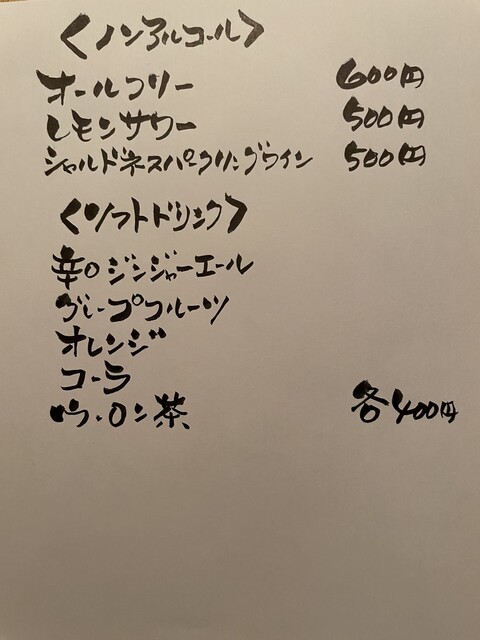 <ノンアルコール>
オールフリー 600円
レモンサワー 500円
シャルドネスパークリングワイン 500円
<ソフトドリンク>
辛口ジンジャーエール
グレープフルーツ
オレンジ
コーラ
ウーロン茶 各400円